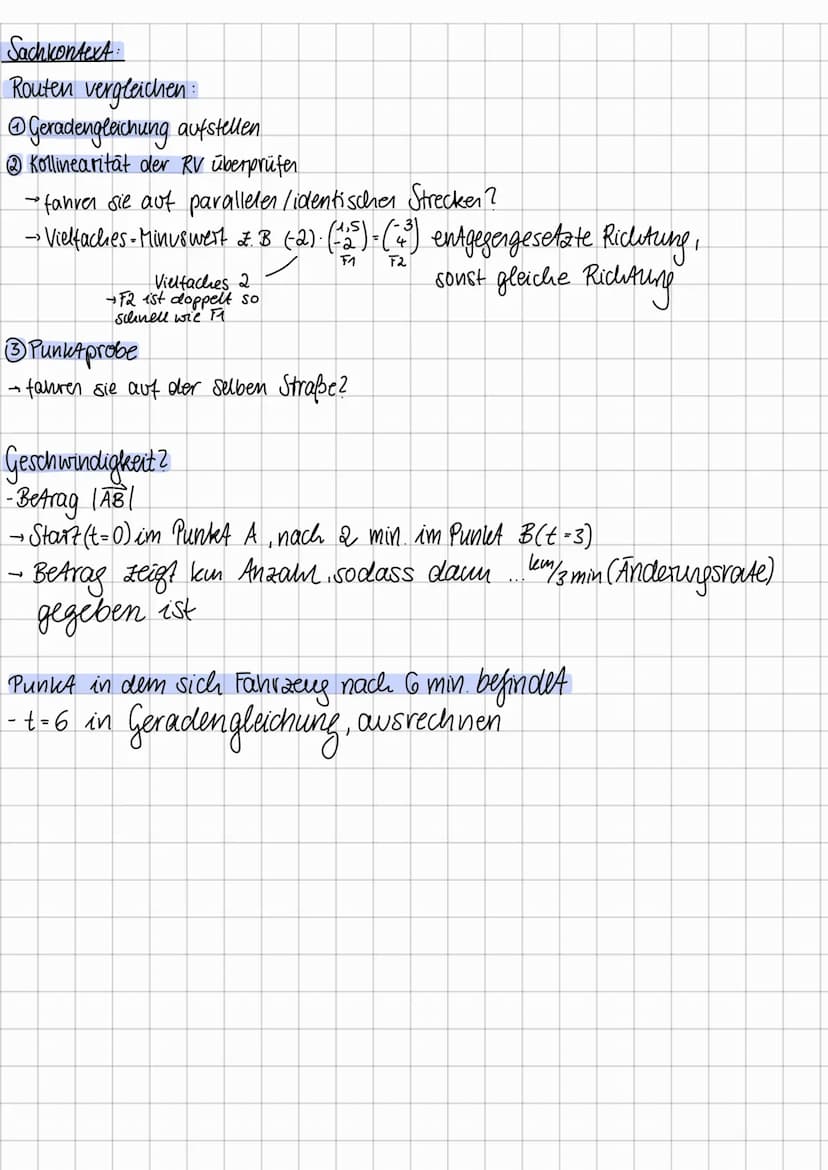 Sachkontext:
Routen vergleichen:
① Geradengleichung aufstellen
② Kollinearität der RV überprüfen
→ fahren sie auf parallelen/identischen Strecken?
→ Vielfaches = Minuswert z.B (-2) · (1,5 -2) = (-3 4) entgegengesetzte Richtung,
F1 F2
sonst gleiche Richtung
Vielfaches 2
→ F2 ist doppelt so
schnell wie F1
③ Punktprobe
→ fahren sie auf der selben Straße?
Geschwindigkeit?
- Betrag |AB|
→ Start (t=0) im Punkt A, nach 2 min. im Punkt B (t=3)
→ Betrag zeigt km Anzahl, sodass dann ... km/3 min (Änderungsrate)
gegeben ist
Punkt in dem sich Fahrzeug nach 6 min. befindet
- t=6 in Geradengleichung, ausrechnen